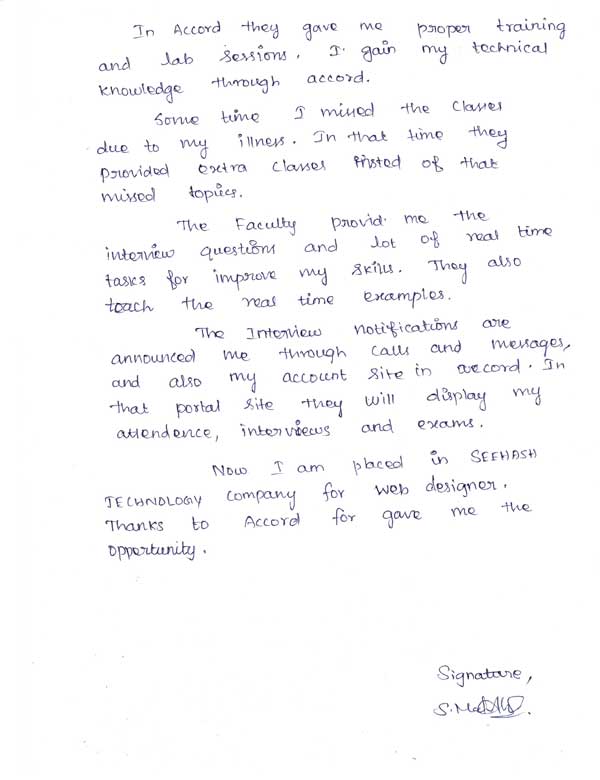 In Accord they gave me proper training
and lab sessions. I gain my technical
knowledge through accord.
Some time I missed the classes
due to my illness. In that time they
provided extra classes insted of that
missed topics.
The Faculty provid me the
interview questions and lot of real time
tasks for improve my skills. They also
teach the real time examples.
The Interview notifications are
announced me through calls and messages,
and also my account site in accord. In
that portal site they will display my
attendence, interviews and exams.
Now I am placed in SEEHASH
TECHNOLOGY company for web designer.
Thanks to Accord for gave me the
opportunity.
Signature,